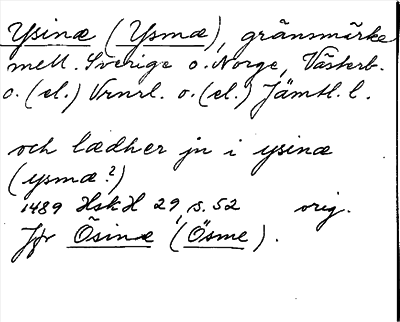 Ysinæ (Ysmæ), gränsmärke
mell. Sverige o. Norge, Västerb.
o. (el.) Vrnrl. o. (el.) Jämtl. l.
och lædher jn i ysinæ
(ysmæ?)
1489 HskH 29, s. 52 orig.
Jfr Õsinæ (Ösme).